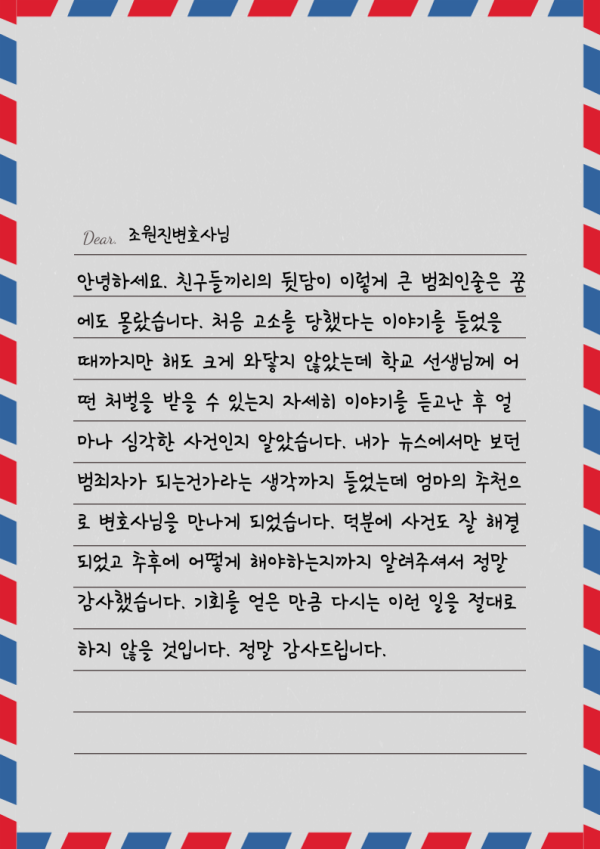 Dear. 조원진변호사님
안녕하세요. 친구들끼리의 뒷담이 이렇게 큰 범죄인줄은 꿈
에도 몰랐습니다. 처음 고소를 당했다는 이야기를 들었을
때까지만 해도 크게 와닿지 않았는데 학교 선생님께 어
떤 처벌을 받을 수 있는지 자세히 이야기를 듣고난 후 얼
마나 심각한 사건인지 알았습니다. 내가 뉴스에서만 보던
범죄자가 되는건가라는 생각까지 들었는데 엄마의 추천으
로 변호사님을 만나게 되었습니다. 덕분에 사건도 잘 해결
되었고 추후에 어떻게 해야하는지까지 알려주셔서 정말
감사했습니다. 기회를 얻은 만큼 다시는 이런 일을 절대로
하지 않을 것입니다. 정말 감사드립니다.